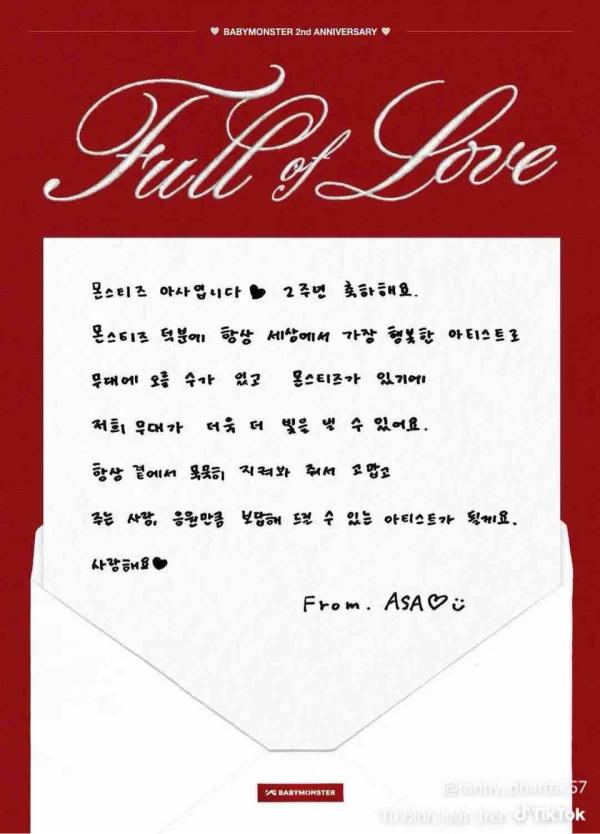 BABYMONSTER 2nd ANNIVERSARY
Full of Love
몬스티즈 아사입니다♥ 2주년 축하해요.
몬스티즈 덕분에 항상 세상에서 가장 행복한 아티스트로
무대에 오를 수가 있고 몬스티즈가 있기에
저희 무대가 더욱 더 빛을 낼 수 있어요.
항상 곁에서 묵묵히 지켜봐 줘서 고맙고
주는 사랑, 응원만큼 보답해 드릴 수 있는 아티스트가 될게요.
사랑해요♥
From. ASA♡
YG BABYMONSTER
Từ bình luận trên TikTok